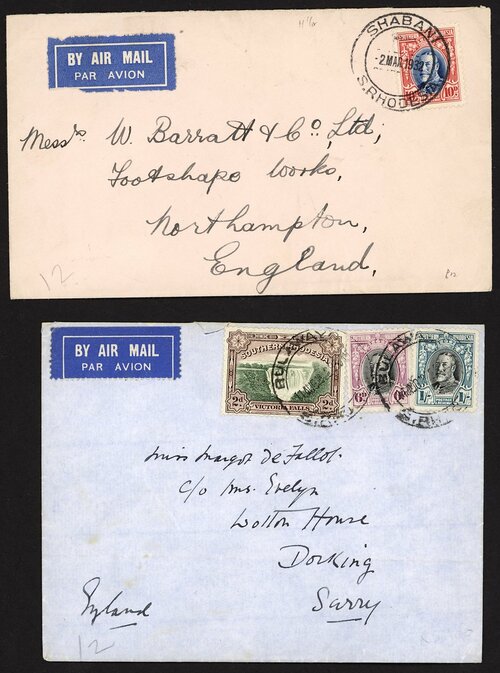 BY AIR MAIL
PAR AVION
SHABANI
2 MAR 1932
S. RHODESIA
10D
Messrs W. Barratt & Co Ltd,
Footshape Works,
Northampton,
England,
12
BY AIR MAIL
PAR AVION
SOUTHERN RHODESIA
2d 2d
VICTORIA FALLS
6d
1/- 1/-
BULAWAYO
BULAWAYO
Miss Margot de Fallot.
c/o Mrs. Evelyn
Wotton House
Dorking
Surry
England
12